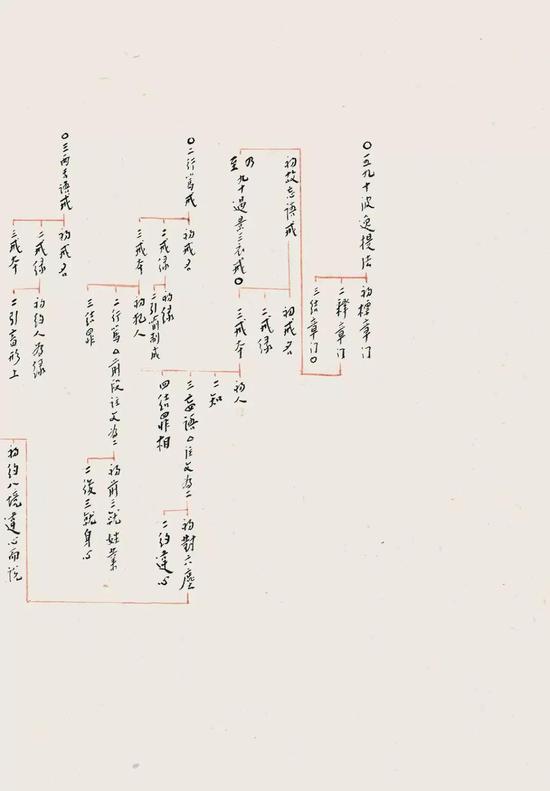 〇五九十波逸提法
初標章门
二釋章门
三結章门〇
初故忘语戒
乃至九十過量三衣戒〇
初戒名
二戒緣
三戒本
初人
二知
三忘语△注文為二
四結罪相
初對六塵
二約違心
〇二行罵戒
初戒名
二戒緣
三戒本
初緣
二引前制成
初犯人
二行罵△前段注文為二
三結罪
初前三就姓業
二後三就身心
〇三兩舌语戒
初戒名
二戒緣
三戒本
初約人為緣
二引畜形上
初約八境違心而说